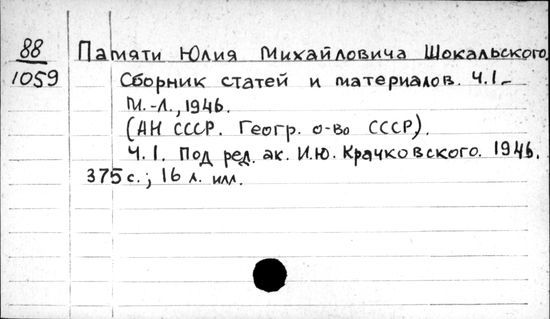 88
1059
Памяти Юлия Михайловича Шокальского.
Сборник статей и материалов. Ч.1–
М.-Л., 1946.
(АН СССР. Геогр. о-во СССР).
Ч.1. Под ред. ак. И.Ю. Крачковского. 1946.
375 с.; 16 л. илл.